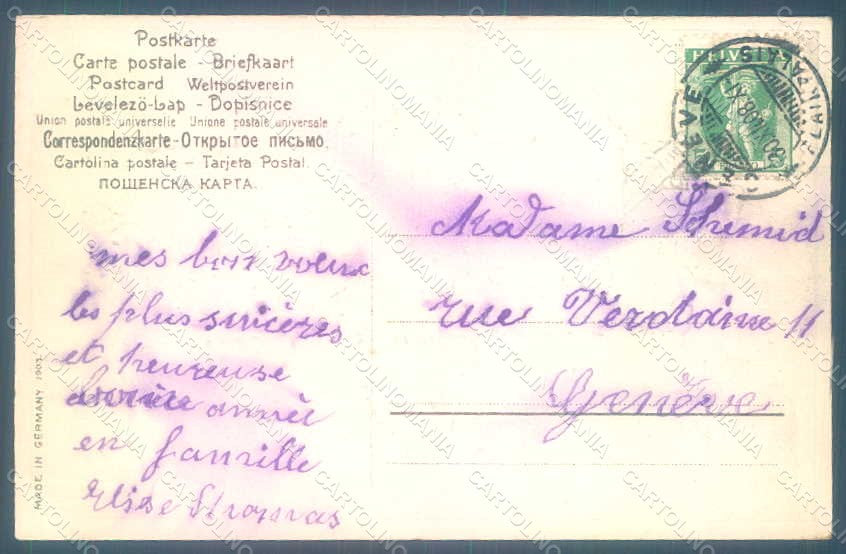 Postkarte
Carte postale - Briefkaart
Postcard Weltpostverein
Levelező-Lap - Dopisnice
Union postale universelle Unione postale universale
Correspondenzkarte - Открытое письмо.
Cartolina postale - Tarjeta Postal.
ПОЩЕНСКА КАРТА.
HELVETIA
MADE IN GERMANY 1907
mes bon voeux
les plus sincères
et heureuse
année
en famille
Elise
Madame Schmid
rue Verdaine 11
Genève
CARTOLINOMANIA